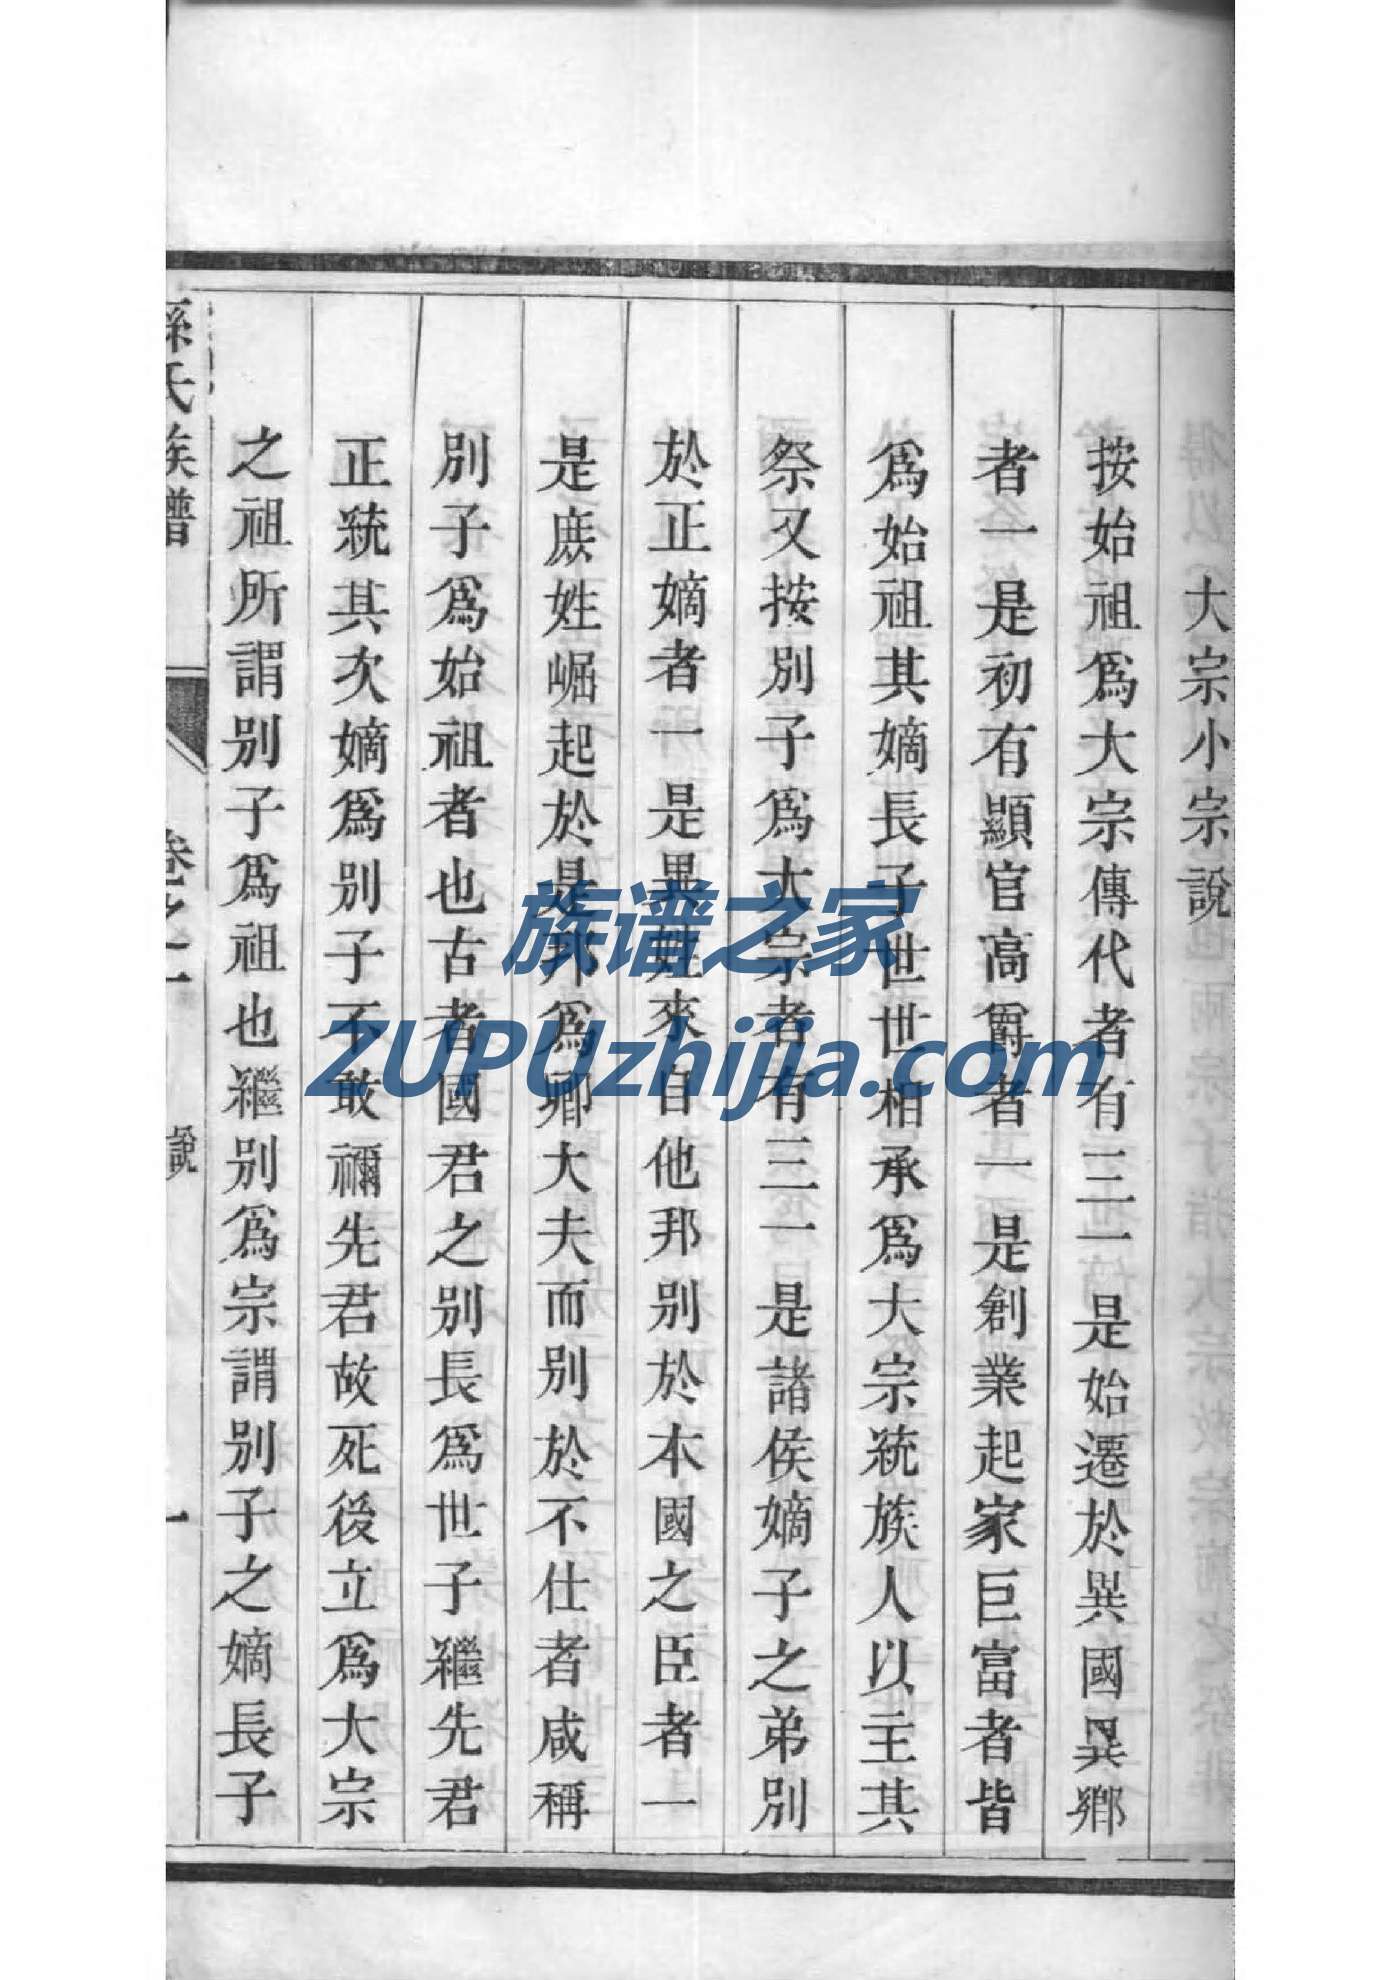 大宗小宗說
按始祖爲大宗傳代者有三一是始遷於異國異鄉
者一是初有顯官高爵者一是創業起家巨富者皆
爲始祖其嫡長子世世相承爲大宗統族人以主其
祭又按別子爲大宗者有三一是諸侯嫡子之弟別
於正嫡者一是異姓來自他邦別於本國之臣者一
是庶姓崛起於是邦爲卿大夫而別於不仕者咸稱
別子爲始祖者也古者國君之別長爲世子繼先君
正統其次嫡爲別子不敢禰先君故死後立爲大宗
之祖所謂別子爲祖也繼別爲宗謂別子之嫡長子
孫氏族譜
卷之一
說
一
族谱之家
ZUPUzhijia.com